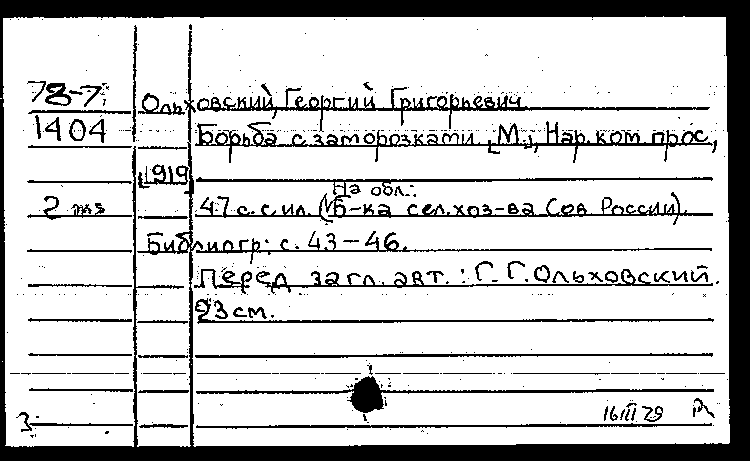 78-7
1404
Ольховский, Георгий Григорьевич
Борьба с заморозками. [М.], Нар. ком. прос,
[1919]
На обл.:
2 экз
47 с. с ил. (Б-ка сел. хоз-ва Сов России).
Библиогр: с. 43-46.
Перед загл. авт.: Г. Г. Ольховский.
23 см.
3
16 III 79